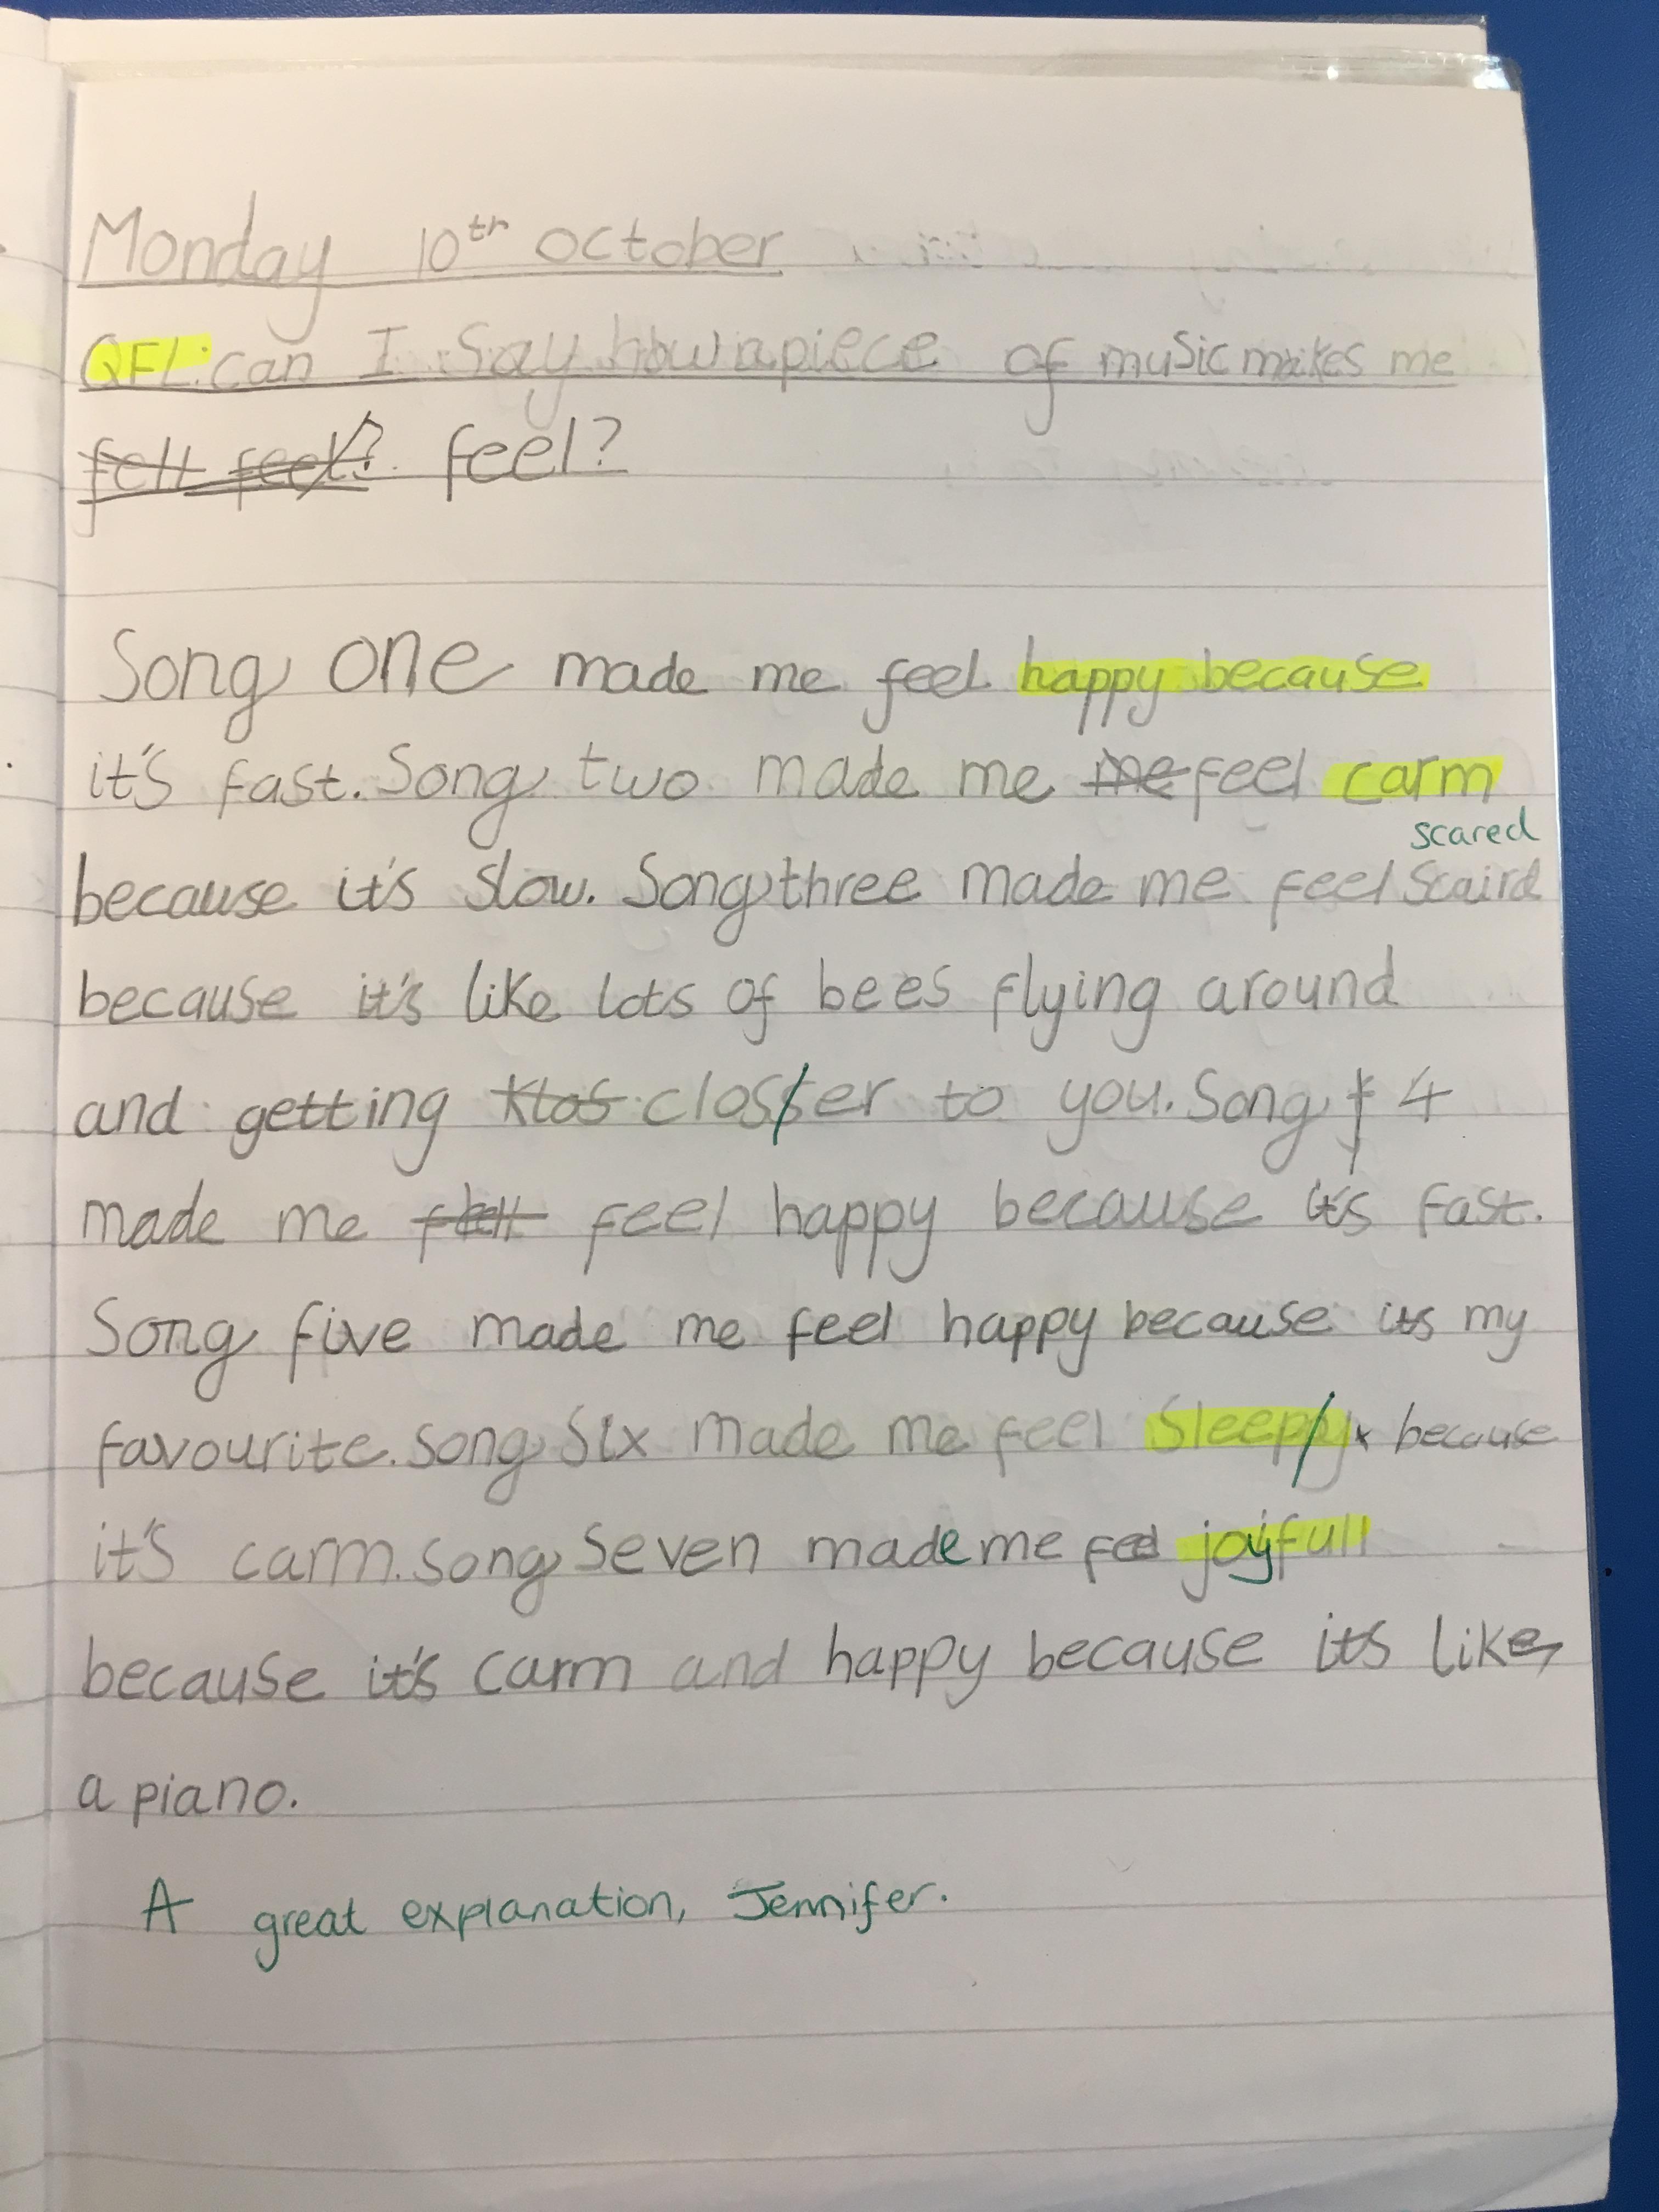 Monday 10th October
QFL: can I say how a piece of music makes me
felt feel? feel?
Song one made me feel happy because
it's fast. Song two made me me feel carm
scared
because it's slow. Song three made me feel scaird
because it's like lots of bees flying around
and getting klos closser to you. Song f 4
made me felt feel happy because it's fast.
Song five made me feel happy because its my
favourite. Song six made me feel sleeppy because
it's carm. Song seven made me feel joyfull
because it's carm and happy because its like
a piano.
A great explanation, Jennifer.